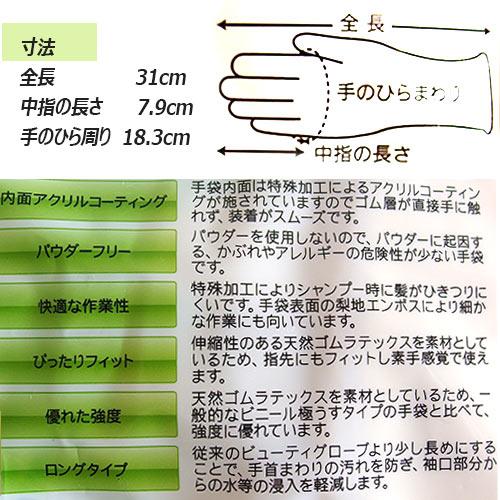 寸法
全長 31cm
中指の長さ 7.9cm
手のひら周り 18.3cm
全長
手のひらまわり
中指の長さ
内面アクリルコーティング
手袋内面は特殊加工によるアクリルコーティン
グが施されていますのでゴム層が直接手に触
れず、装着がスムーズです。
パウダーフリー
パウダーを使用しないので、パウダーに起因す
る、かぶれやアレルギーの危険性が少ない手袋
です。
快適な作業性
特殊加工によりシャンプー時に髪がひきつりに
くいです。手袋表面の梨地エンボスにより細か
な作業にも向いています。
ぴったりフィット
伸縮性のある天然ゴムラテックスを素材として
いるため、指先にもフィットし素手感覚で使え
ます。
優れた強度
天然ゴムラテックスを素材としているため、一
般的なビニール極うすタイプの手袋と比べて、
強度に優れています。
ロングタイプ
従来のビューティグローブより少し長めにする
ことで、手首まわりの汚れを防ぎ、袖口部分か
らの水等の浸入を軽減します。